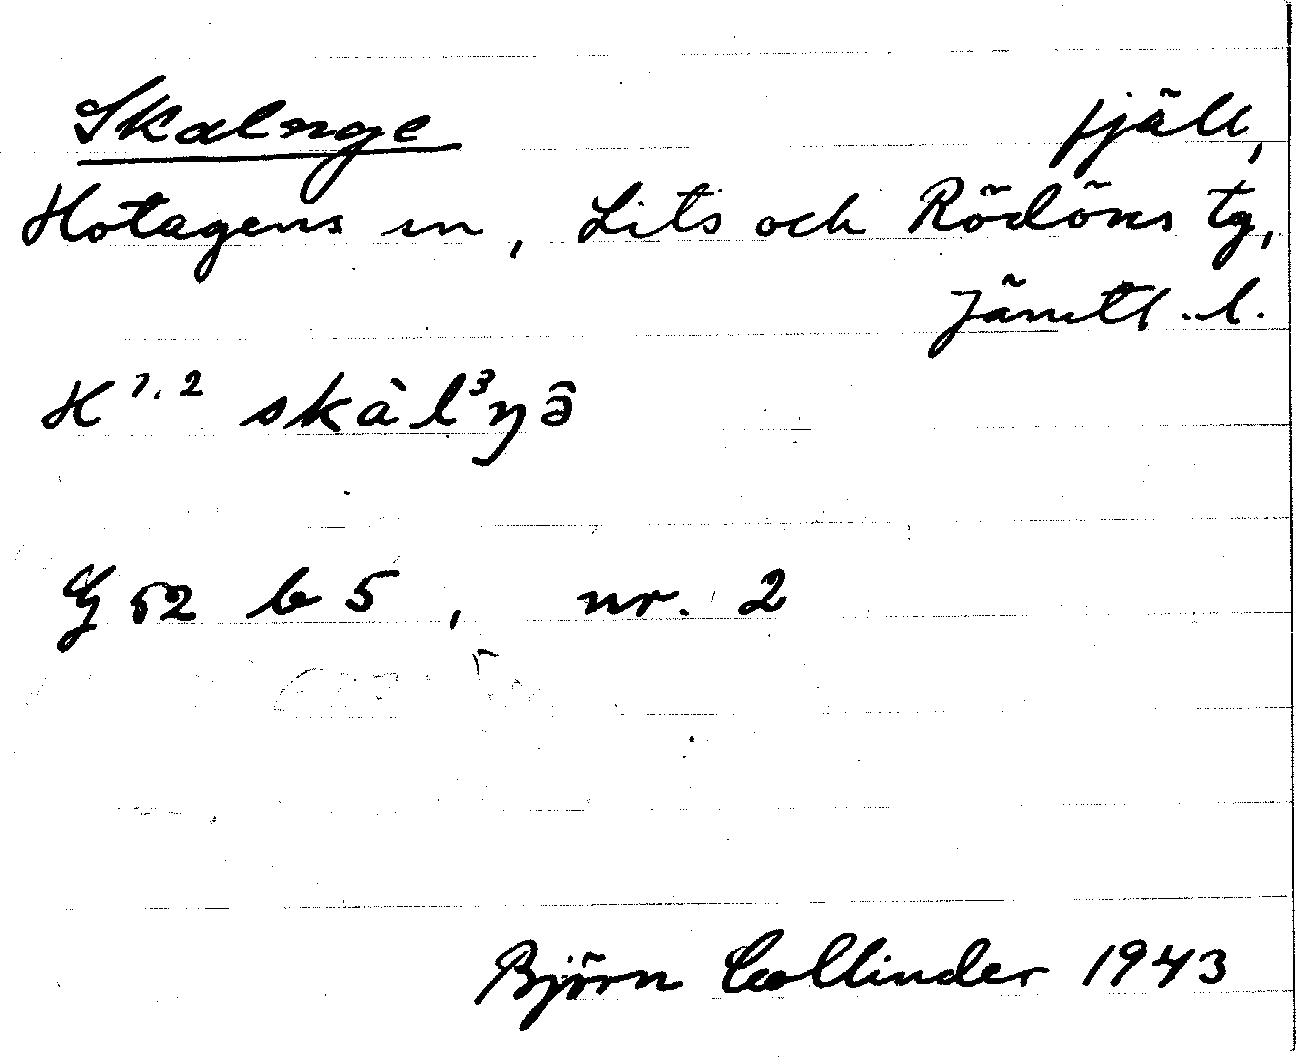 Skalnge fjäll,
Hotagens sn, Lits och Rödöns tg,
Jämtl. l.
H 1. 2 skàl³ŋə̑
G 52 b 5, nr. 2
Björn Collinder 1943